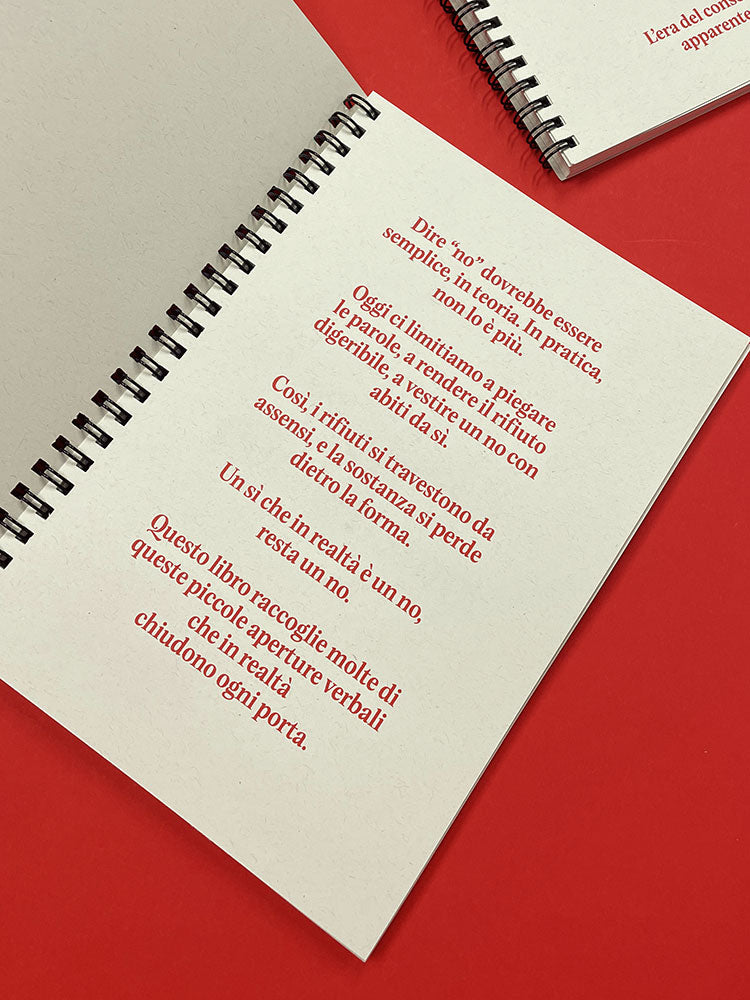 L'era del
apparente
Dire “no” dovrebbe essere
semplice, in teoria. In pratica,
non lo è più.
Oggi ci limitiamo a piegare
le parole, a rendere il rifiuto
digeribile, a vestire un no con
abiti da sì.
Così, i rifiuti si travestono da
assensi, e la sostanza si perde
dietro la forma.
Un sì che in realtà è un no,
resta un no.
Questo libro raccoglie molte di
queste piccole aperture verbali
che in realtà
chiudono ogni porta.